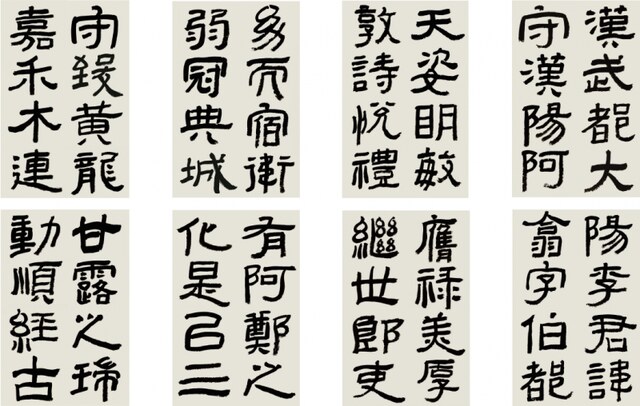 漢武都大
守漢陽阿
陽李君諱
翕字伯都
天姿明敏
敦詩悅禮
膺祿美厚
繼世郎吏
幼而宿衛
弱冠典城
有阿鄭之
化是以三
守致黃龍
嘉禾木連
甘露之瑞
動順經古